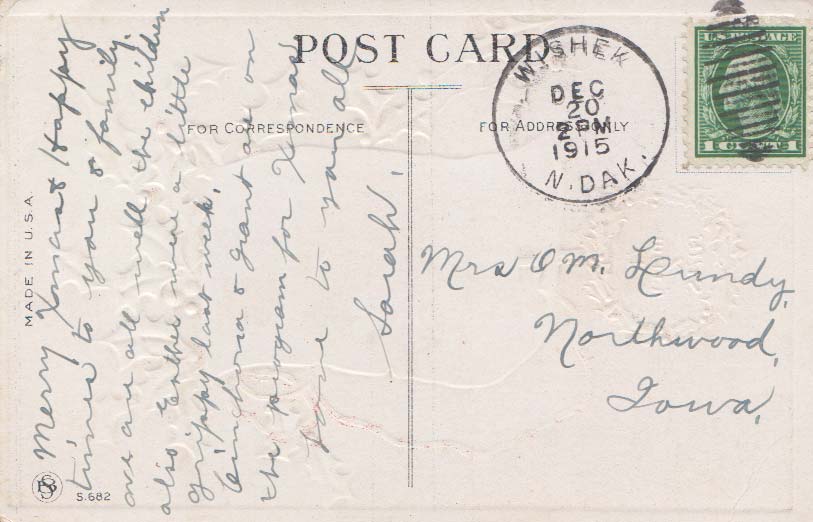 POST CARD
FOR CORRESPONDENCE
FOR ADDRESS ONLY
MADE IN U.S.A.
S.682
WISHEK
DEC
20
2 PM
1915
N. DAK.
U.S. POSTAGE
1 CENT 1
Merry Xmas & Happy
times to you & family.
we are all well the children
also Esther were a little
grippy last week.
& Grant are on
the program for Xmas
love to you all
Sarah.
Mrs O M. Lundy,
Northwood,
Iowa,